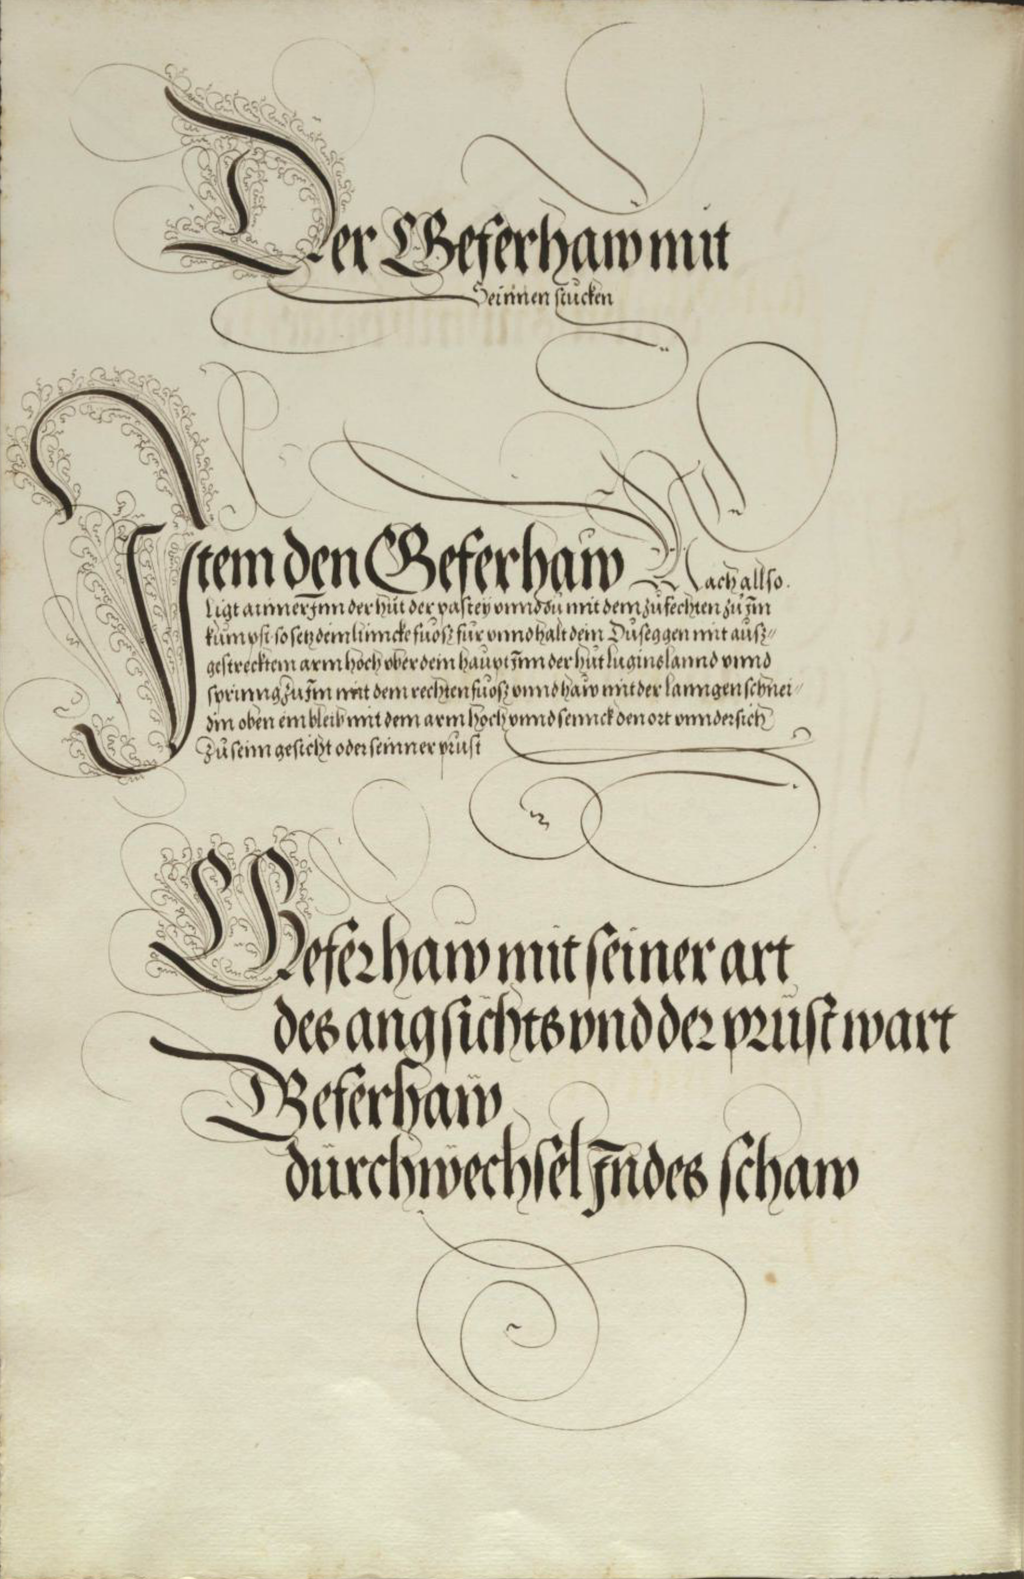 Der Weferhaw mit
Seinnen stucken
Item den Weferhaw Mach allso.
Ligt ainner Jnn der hut der pastey vnnd du mit dem zu fechten zu Jm
kumpst so setz dein linncke fuosz für vnnd halt dein Duseggen mit ausz〃
gestrecktem arm hoch ober dein haupt Jnn der hut luginslannd vnnd
sprinng zu Jm mit dem rechten fuosz vnnd haw mit der lanngen schnei〃
din oben ein bleib mit dem arm hoch vnnd sennck den ort vnndersich
zu seinn gesicht oder seinner prust
Weferhaw mit seiner art
des angsichts vnd der prüst wart
Weferhaw
dürchwechsel Jndes schaw